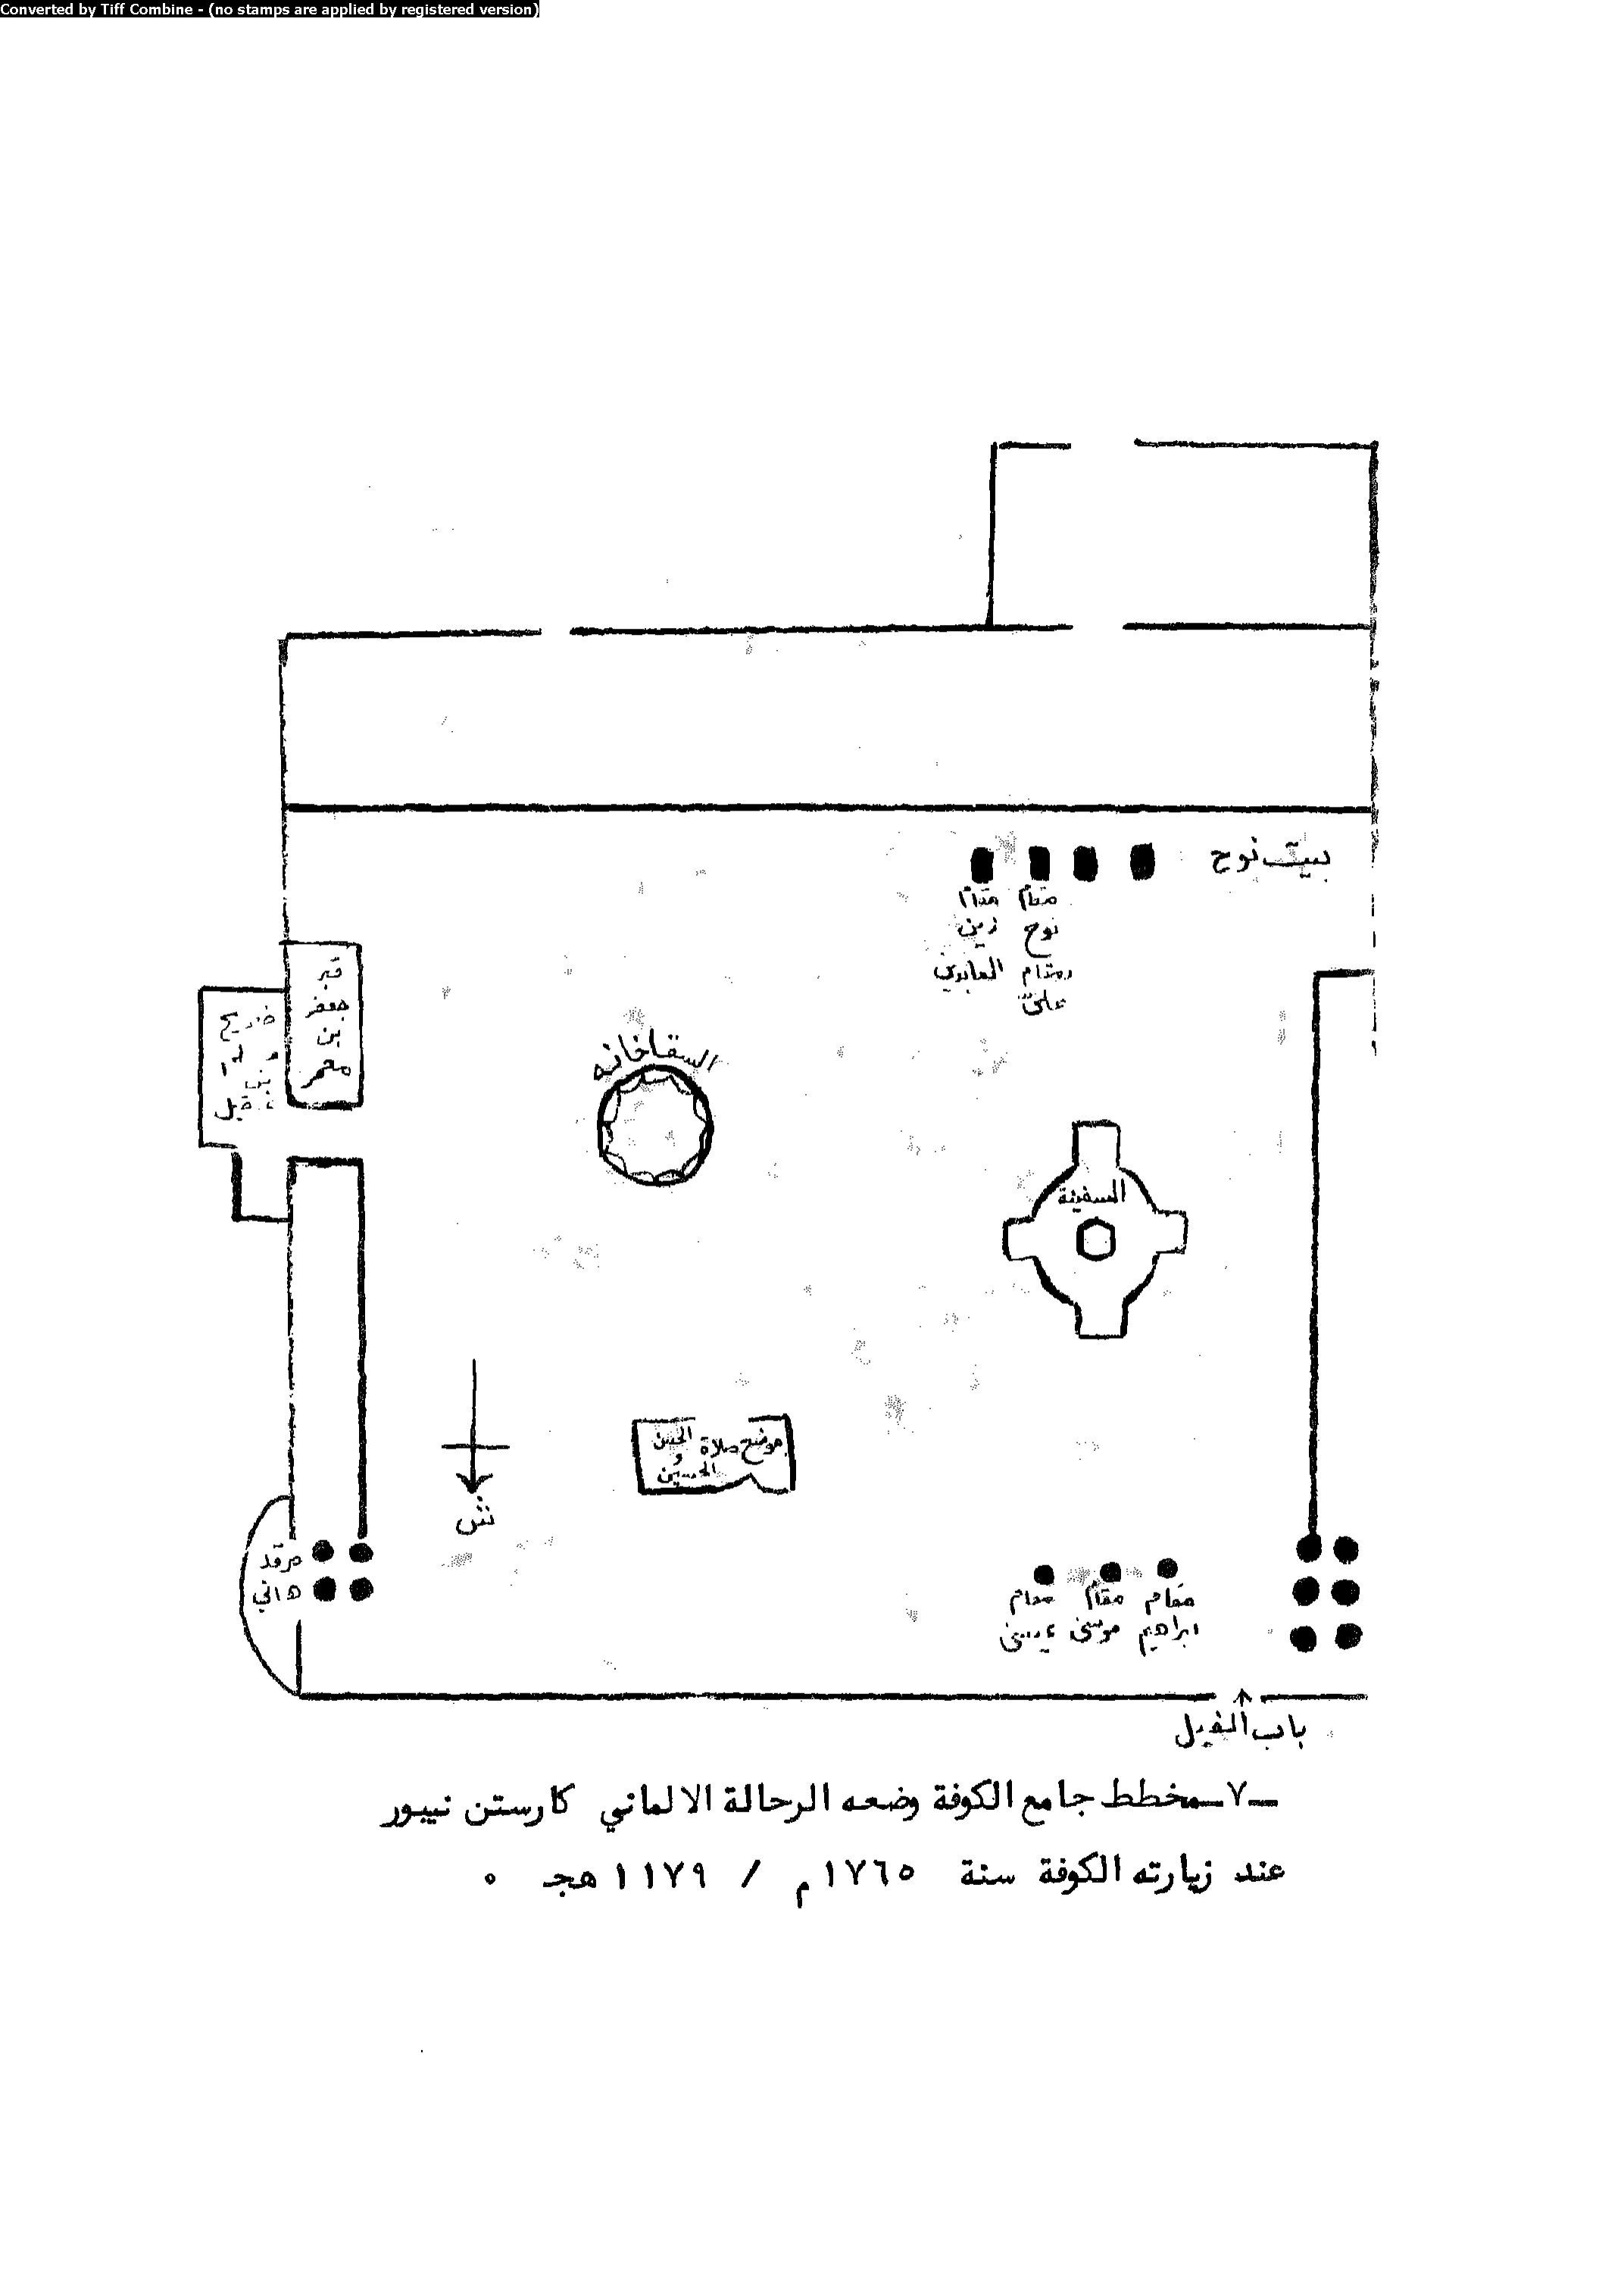 Converted by Tiff Combine - (no stamps are applied by registered version)
بيت نوح
مقام مقام
نوح زين
ومقام العابدين
علي
قبر
جعفر
بن
محمد
ضريح
السقاخانه
السفينة
موضع صلاة الحسن
و
الحسين
ش
مرقد
هاني
مقام مقام مقام
ابراهيم موسى عيسى
باب الفيل
ـ٧ـ مخطط جامع الكوفة وضعه الرحالة الالماني كارستن نيبور
عند زيارته الكوفة سنة ١٧٦٥ م / ١١٧٩ هجـ ٠